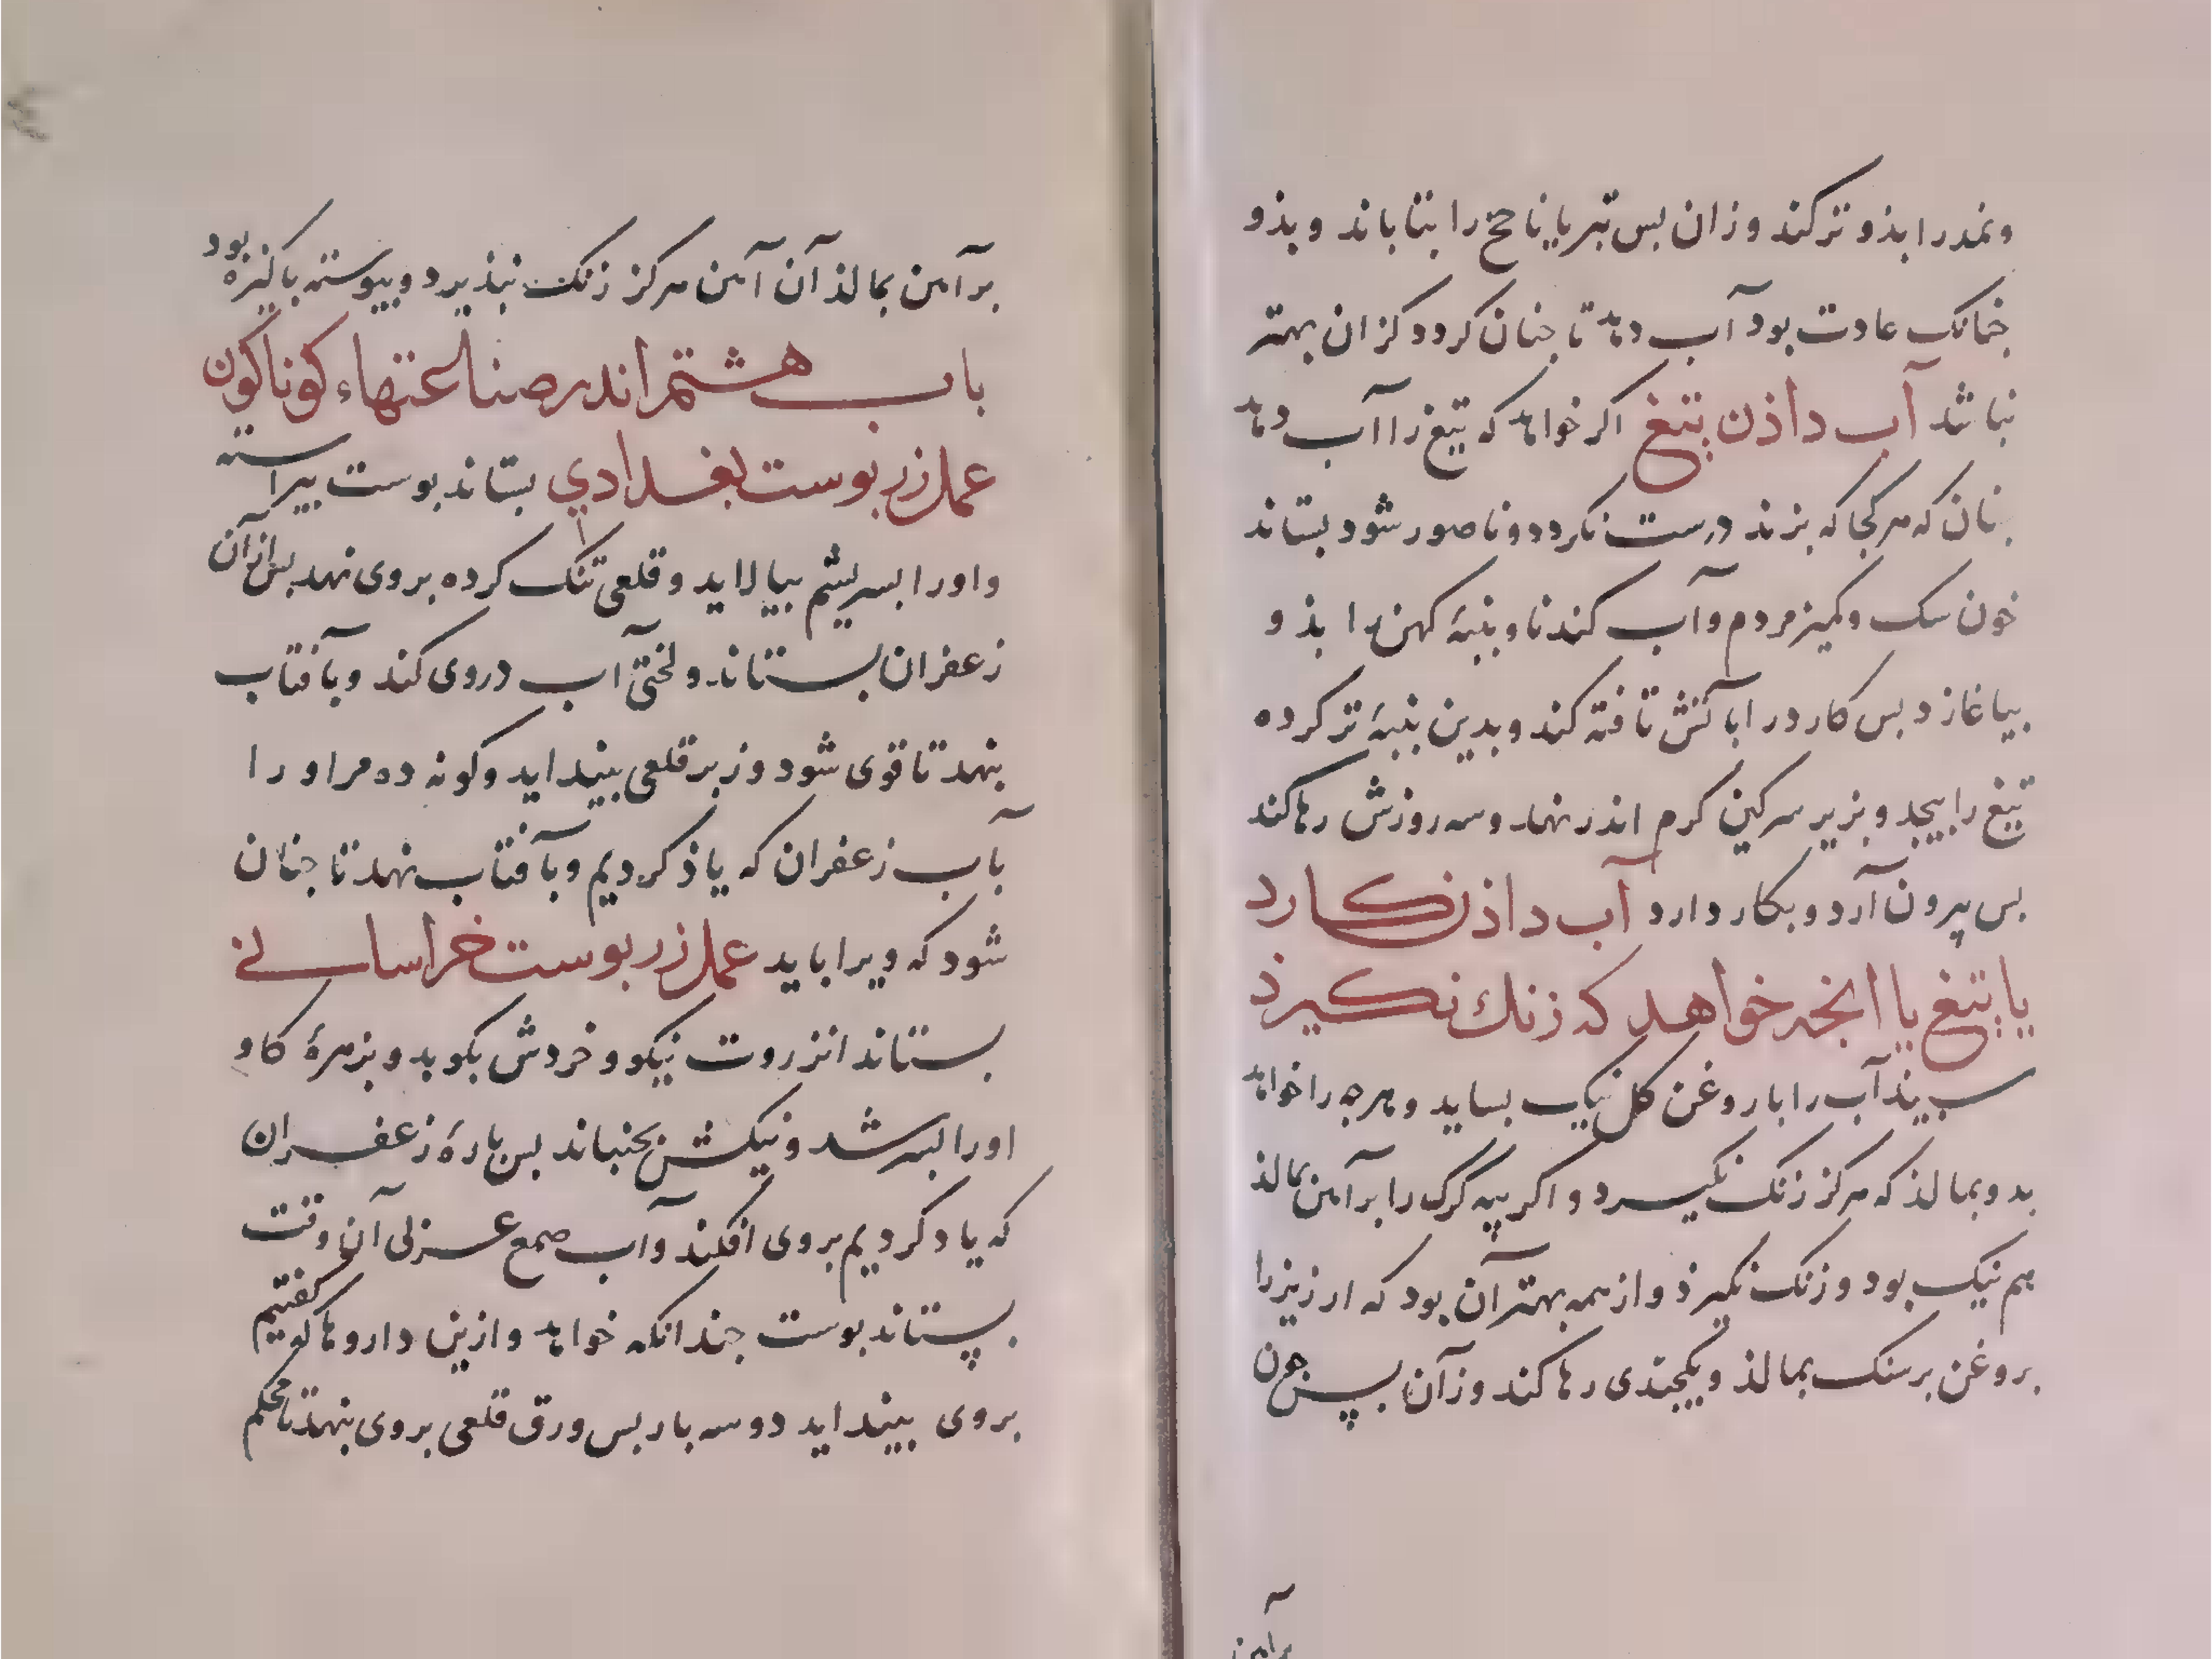 ونمد را بذو تر کند وزان بس تبر یا ناحخ را بتاباند وبذو
خمانک عادت بود آب دهد تا جنان کردد کزان بهتر
نباشد آب داذن بتیغ اکر خواهد که تیغ را آب دهد
نان که هرکجا که بزند درست نکردد وناصور شود بستاند
خون سک وکمیز مردم وآب کندنا وبنبهٔ کهن را بذو
بیاغازد بس کارد را بآتش تافته کند وبدین بنبهٔ تر کرده
تیغ را بیجد وبزیر سرکین کرم اندر نهد وسه روزش رها کند
بس بیرون آرد وبکار دارد آب داذن کارد
یا بتیغ یا انجه خواهد که زنك نکیرذ
سبیذآب را با روغن کل نیک بساید وهرجه را خواهد
بدو بمالذ که هرکز زنک نکیرد واکر پیه کرک را برآهن بمالذ
هم نیک بود وزنک نکیرذ واز همه بهتر آن بود که ارزیز را
بروغن برسنک بمالذ ویکجندی رها کند وزآن بس جون
برآهن
برآهن بمالذ آن آهن هرکز زنک نبذیرد وبیوسته باکیزه بود
باب هشتم اندر صناعتهاء کوناکون
عمل زر بوست بغدادي بستاند بوست بیراسته
واورا بسریشم بیالاید وقلعی تنک کرده بروی نهد بس ازان
زعفران بستاند ولختی آب دروی کند وبآفتاب
بنهد تا قوی شود وزبر قلعی بینداید وکونه ده مراورا
بآب زعفران که یاذ کردیم وبآفتاب نهد تا جنان
شود که ویرا باید عمل زر بوست خراسانی
بستاند انزروت نیکو وخردش بکوبد وبزهرهٔ کاو
اورا بسرشد ونیکش بجنباند بس بارهٔ زعفران
که یاد کردیم بروی افکند وآب صمع عزلی آن وقت
بستاند بوست جندانکه خواهد وازین داروها که کفتیم
بروی بینداید دوسه بار بس ورق قلعی بروی بنهد تا محکم